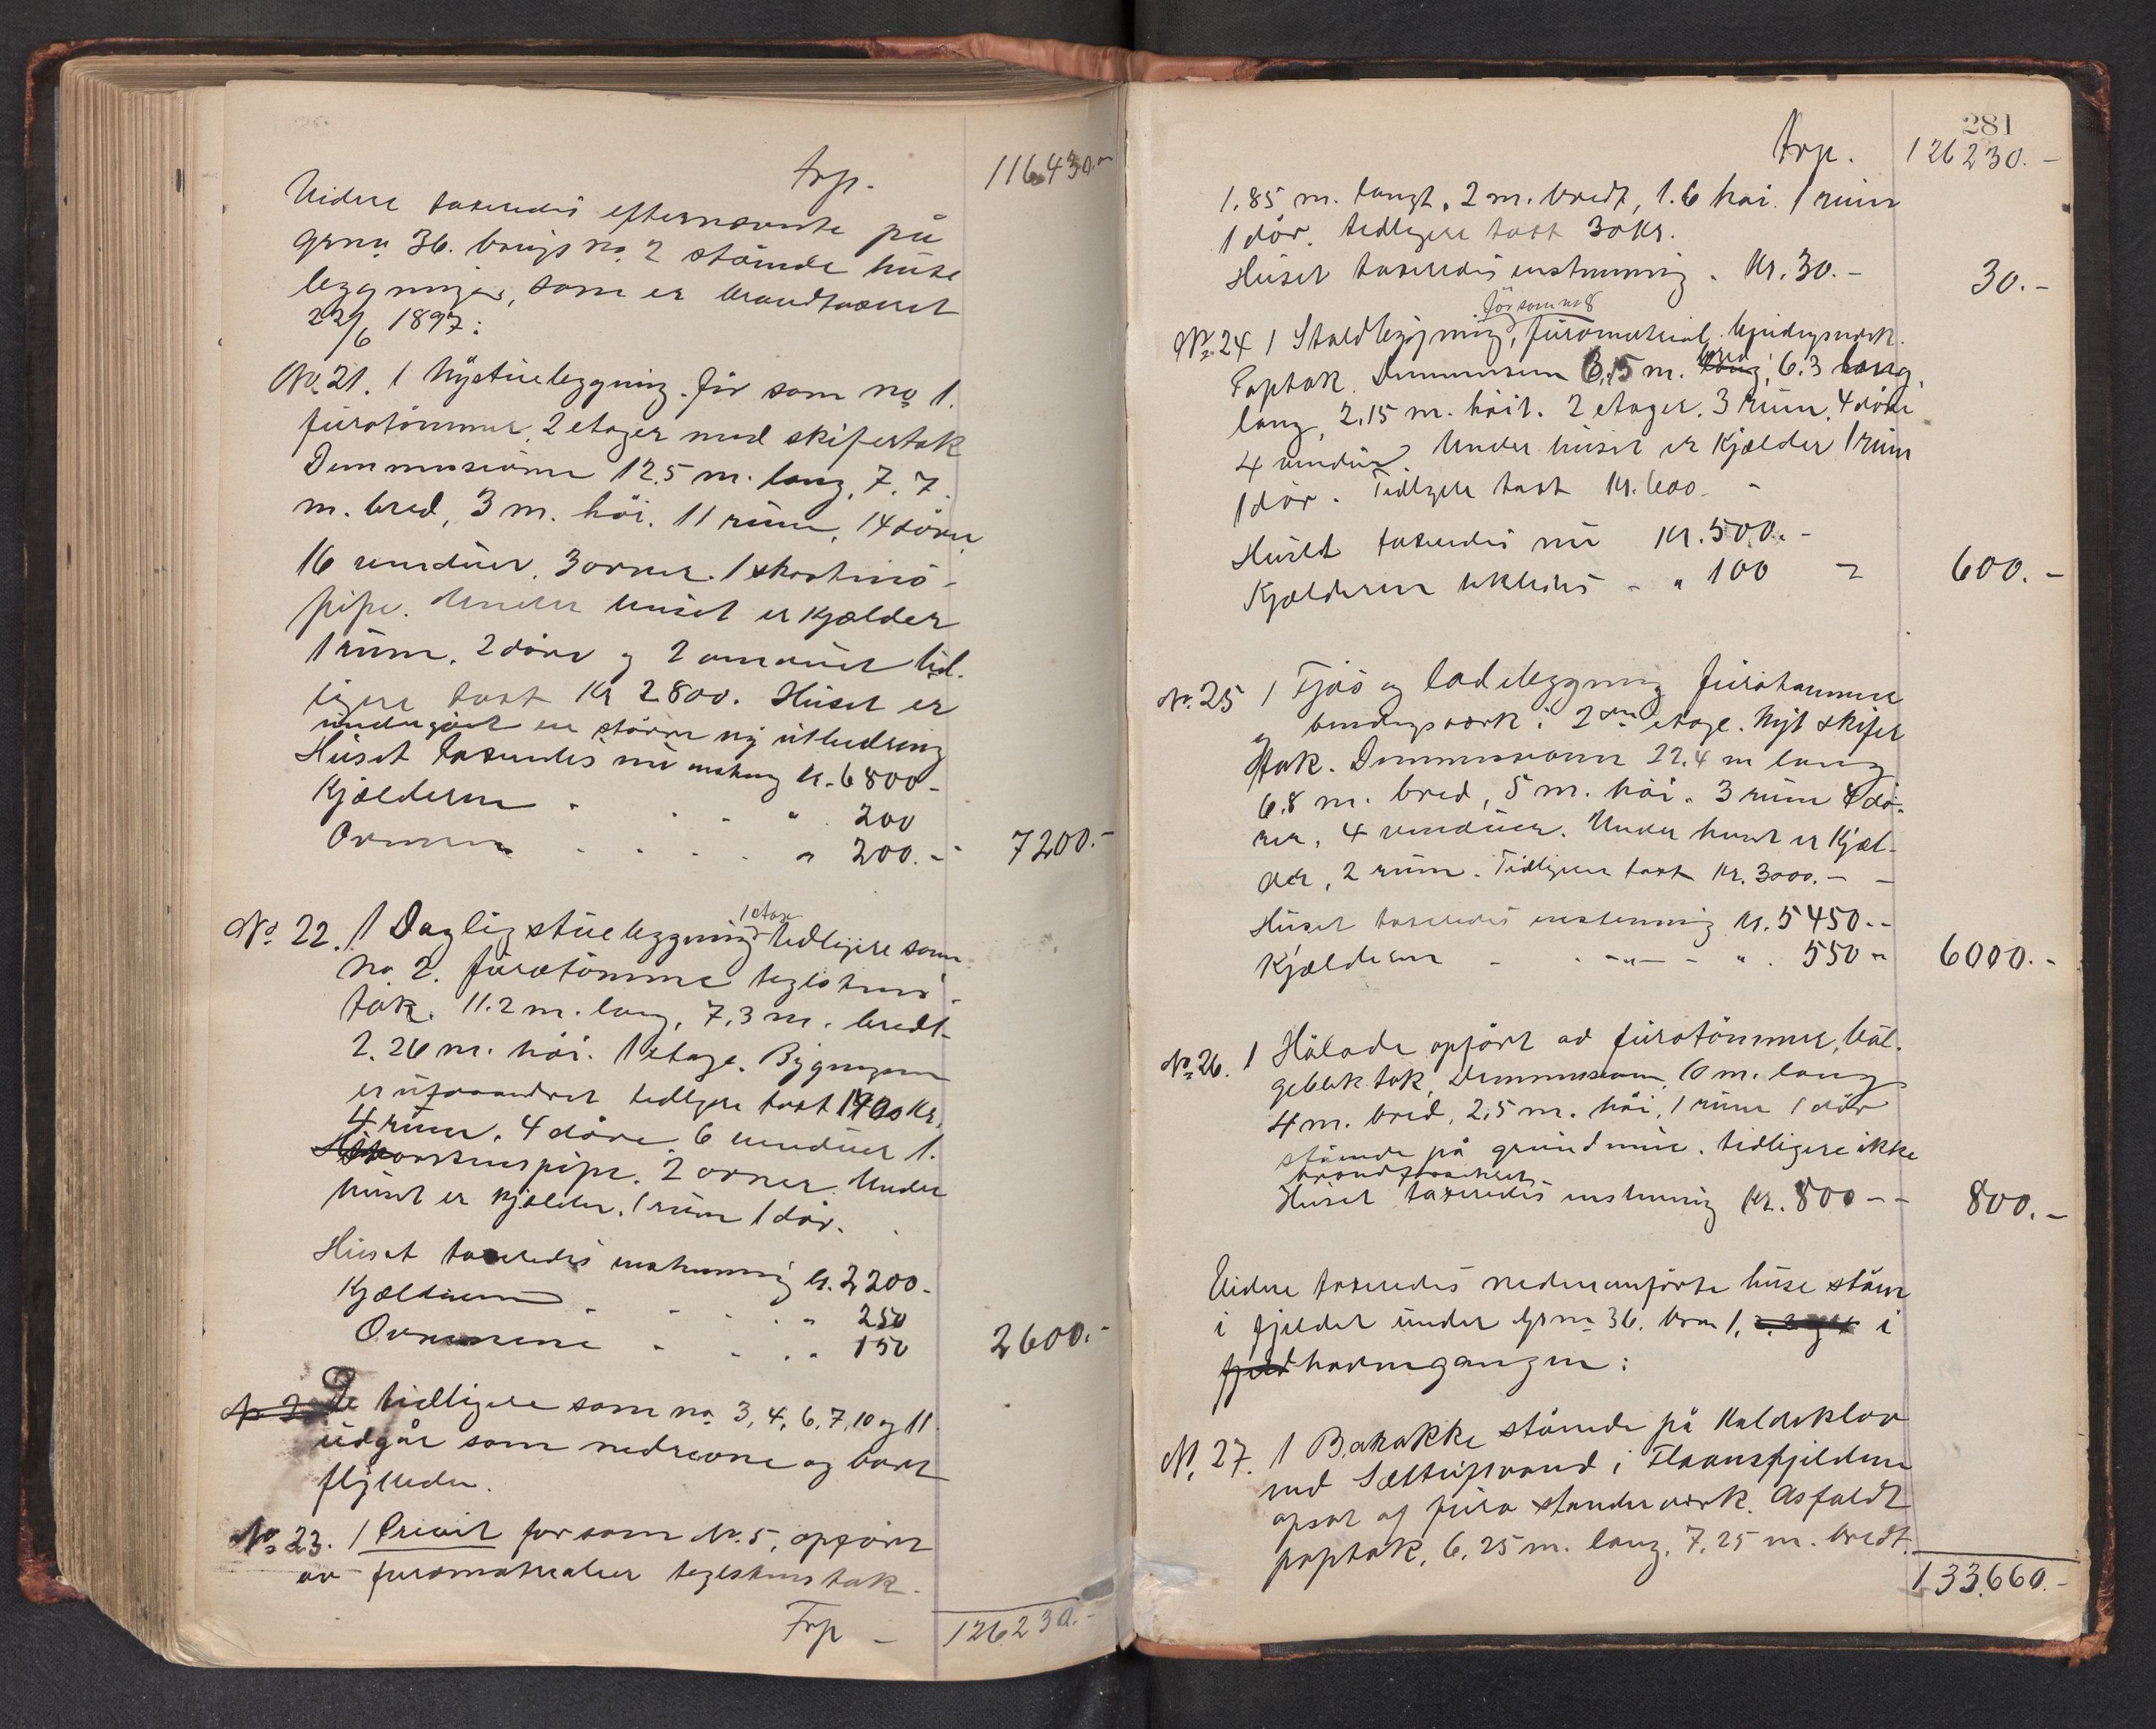 trp. 116430.-
Videre taxeredes efternævnte på
grno. 36. brugs no. 2 stående huse
byggninger, som er brandtaxeret
22/6 1897:
No. 21. 1 Nystuebyggning. för som no 1.
furotömmer, 2 etager med skifertak
Demmensioner 12.5 m. lang, 7.7.
m. bred, 3 m. höi. 11 rum, 14 dörer
16 vinduer, 3 ovner. 1 skorstens-
pipe. Under huset er kjælder
1 rum, 2 döre og 2 vinduer tid.
ligere taxt Kr 2800. Huset er
undergået en större ny utbedring
Huset taxeredes nu enstemmig kr. 6800-
Kjælderen - - - " 200
Ovnene - - - - " 200.- 7200.-
No. 22. 1 Dagligstuebyggning 1 etage tidligere som
no 2. furotömmer teglstens-
tak. 11.2 m. lang, 7.3 m. bredt
2.26 m. höi. 1 etage. Bygningen
er uforandret tidligere taxt 1900 Kr.
4 rum, 4 döre 6 vinduer 1.
skorstenspipe. 2 ovner. Under
huset er kjælder, 1 rum 1 dör.
Huset taxeredes enstemmig kr. 2200.-
Kjælderen - - - . " 250
Ovnene - - . . " 150 2600.-
De tidligere som no. 3, 4, 6, 7, 10 og 11
udgår som nedrevne og bort
flyttede.
No. 23. 1 Privet for som No. 5, opfört
av furomaterialier teglstenstak.
Trp - 126230.-
281
trp. 126230.-
1.85 m. langt, 2 m. bredt, 1.6 höi. 1 rum
1 dör. tidligere taxt 30 Kr.
Huset taxeredes enstemmig. Kr. 30.- 30.-
för som no 8
No. 24 1 Staldbyggning, furomaterial. bindingsverk.
Paptak. Demmensioner 6.15 m. bred, 6.3 lang,
lang, 2.15 m. höit. 2 etager. 3 rum, 4 döre
4 vinduer Under huset er Kjælder 1 rum
1 dör. Tidligere taxt Kr. 600. -
Huset taxeredes nu Kr. 500.-
Kjælderen - " 100 = 600.-
No. 25 1 Fjös og ladebyggning furotömmer
og bindingsværk i 2den etage. Nyt skifer
tak. Demmensioner 22.4 m lang
6.8 m. bred, 5 m. höi. 3 rum 8 dö-
rer, 4 vinduer. Under huset er Kjæl-
der, 2 rum. Tidligere taxt Kr. 3000.- -
Huset taxeredes enstemmig kr. 5450.-
Kjælderen - . - " - - " . 550 " 6000.-
No. 26. 1 Hölade opfört ad furotömmer, böl.
geblektak, Demmensioner, 6 m. lang
4 m. bred, 2.5 m. höi, 1 rum 1 dör
stående på grundmur. tidligere ikke
brandtaxeret.
Huset taxeredes enstemmig Kr. 800 - - 800.-
Videre taxeredes nedenanförte huse ståen
i fjeldet under Grno 36. brno 1. i
havnegangen:
No. 27. 1 Barakke stående på Kaldeklov
ved i Flaamsfjeldene
opsat af furo stenderverk. Asfaldt
paptak, 6.25 m. lang, 7.25 m. bredt.
133.660.-